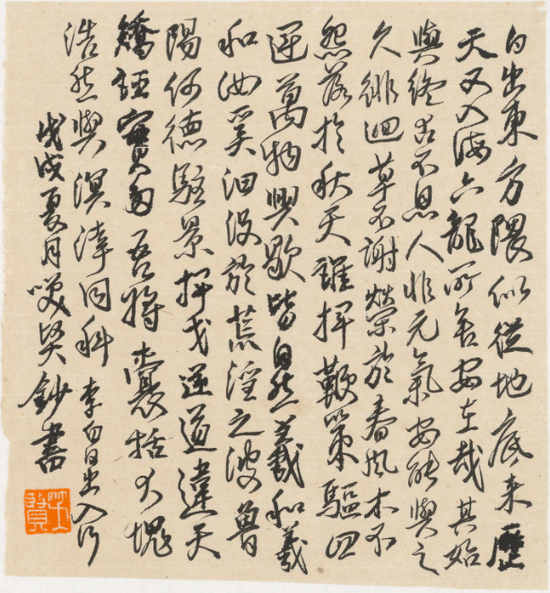 日出東方隈似從地底来歷
天又入海六龍所舍安在哉其始
與終古不息人非元氣安能與之
久徘徊草不謝榮於春風木不
怨落於秋天誰揮鞭策驅四
運萬物興歇皆自然羲和羲
和汝奚汩没於荒淫之波魯
陽何德駐景揮戈逆道違天
矯誣實多吾將囊括大塊
浩然與溟涬同科 李白日出入行
戊戌夏月賢鈔書
賢